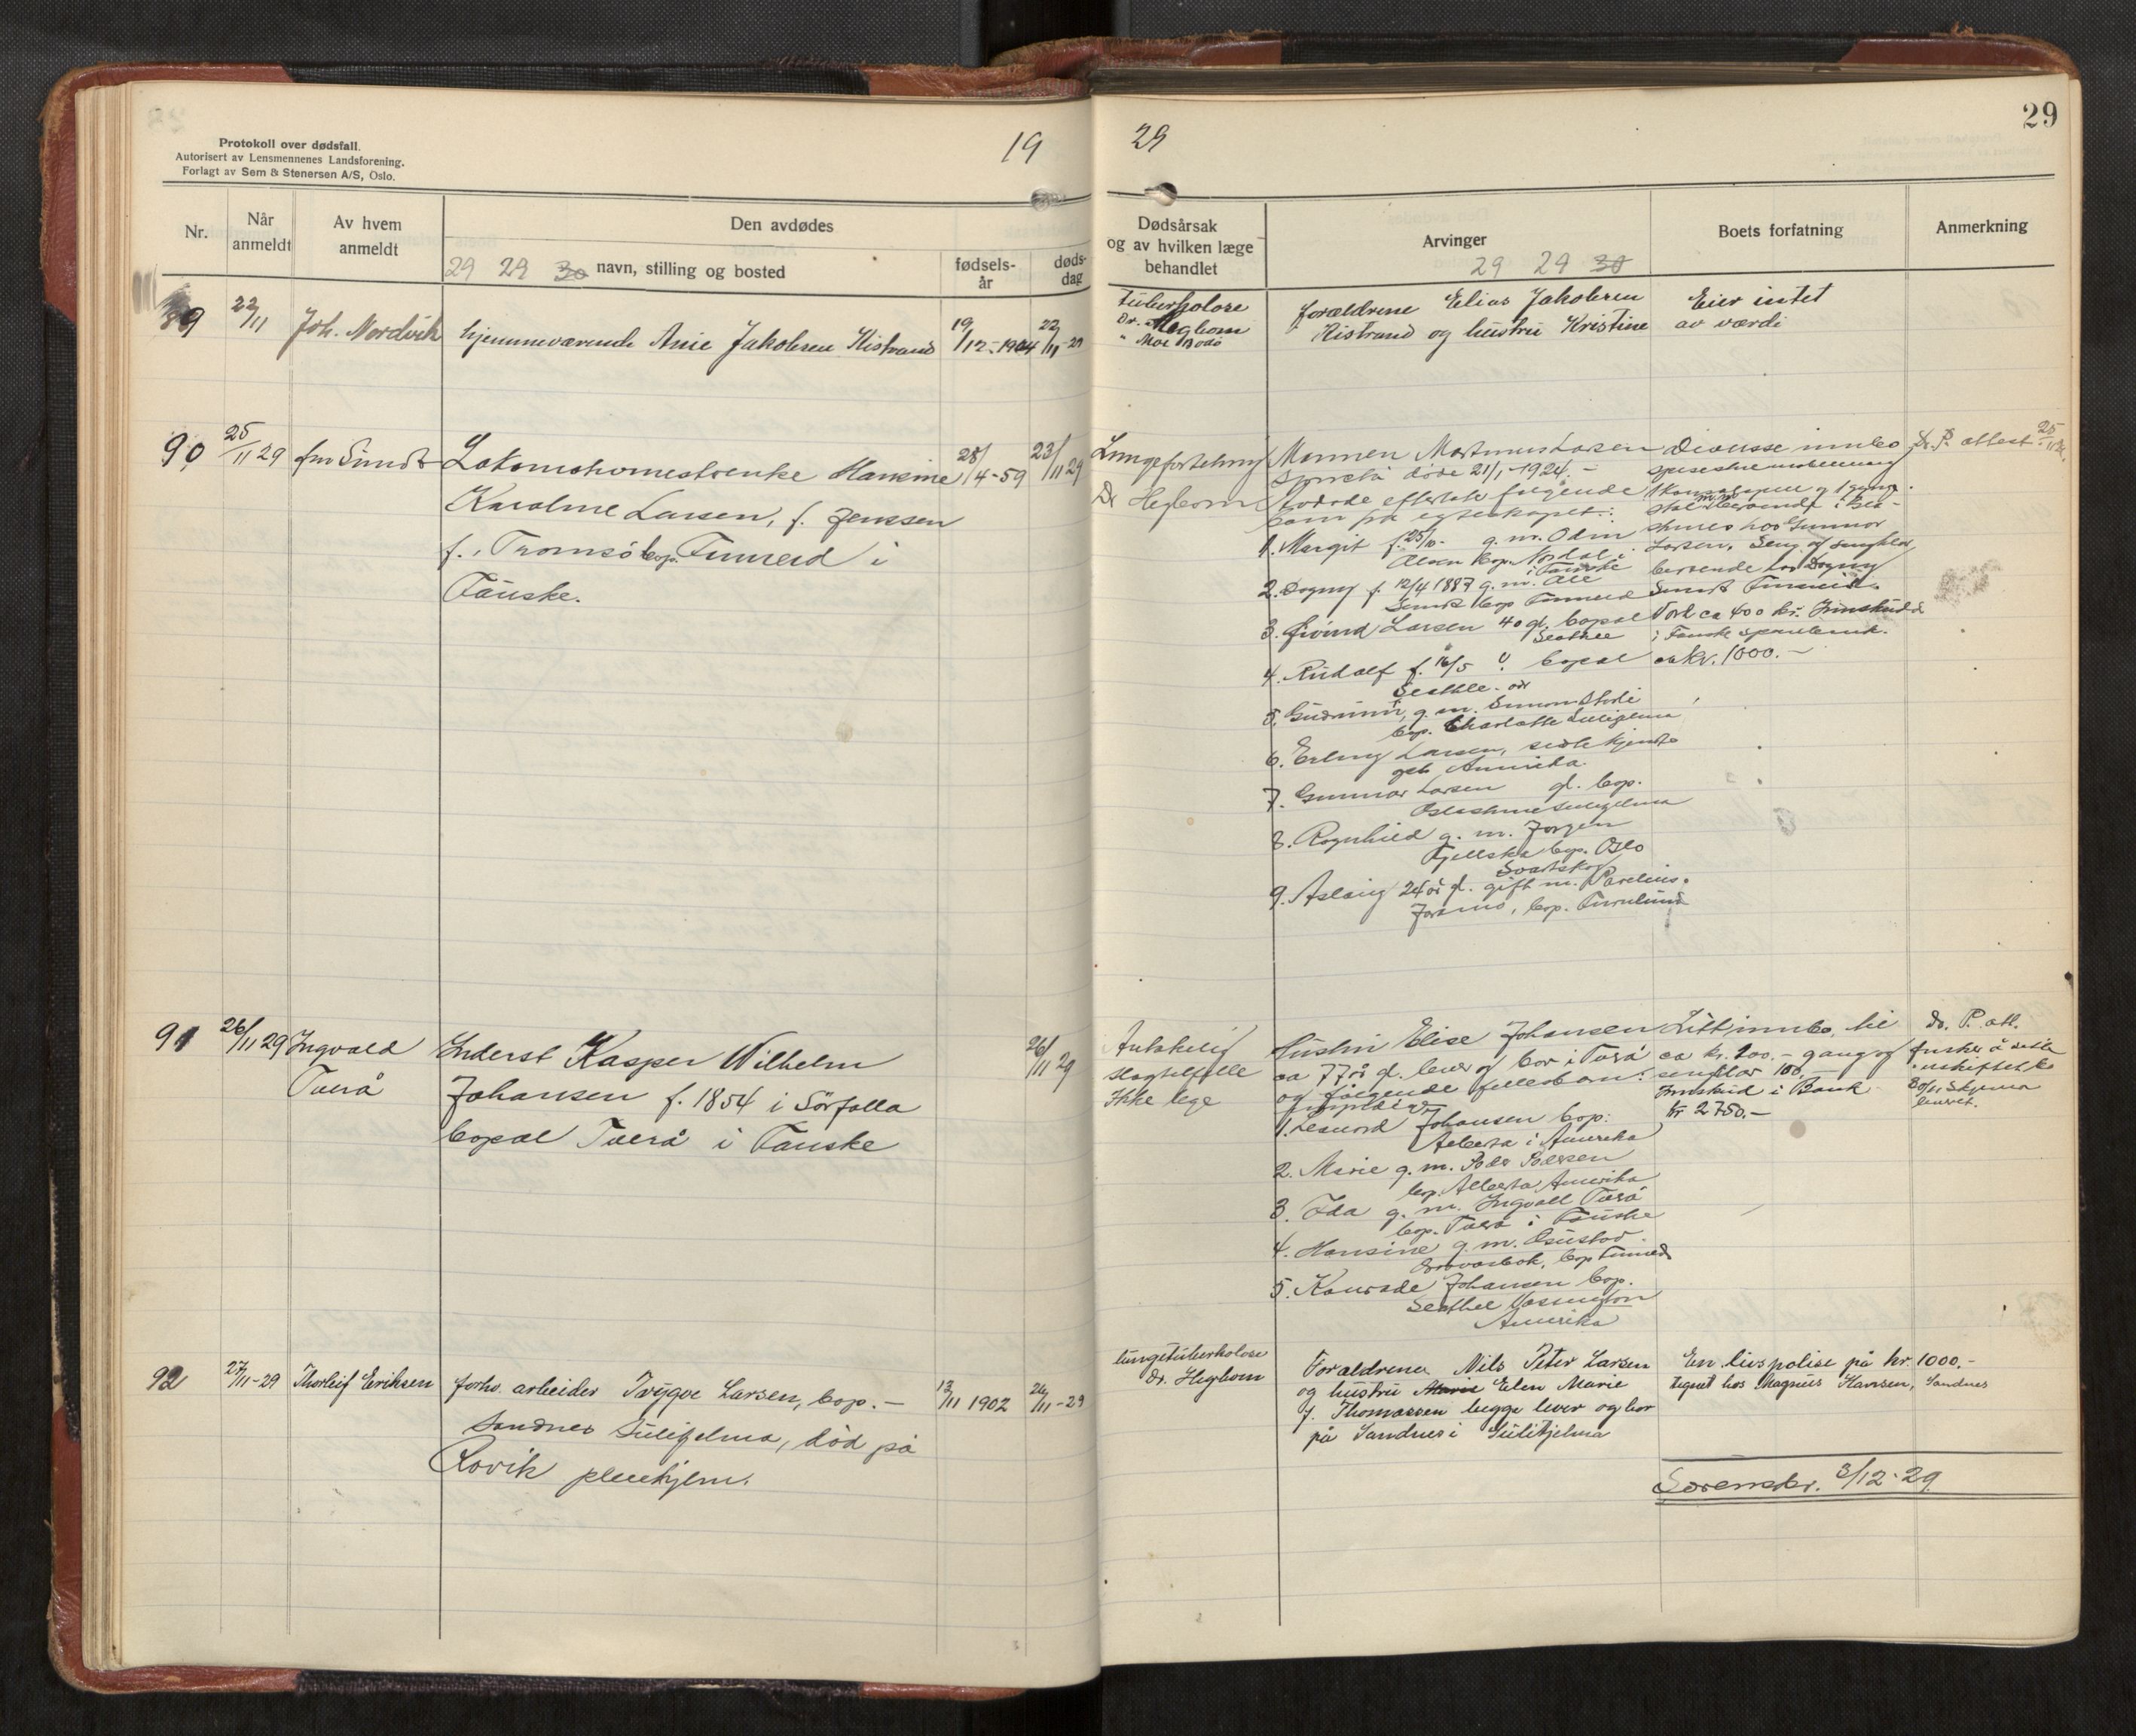 29
Protokoll over dødsfall.
Autorisert av Lensmennenes Landsforening.
Forlagt av Sem & Stenersen A/S, Oslo.
19 29
Nr.
Når anmeldt
Av hvem anmeldt
Den avdødes
29 29 30 navn, stilling og bosted
fødsels-år
døds-dag
Dødsårsak og av hvilken læge behandlet
Arvinger
29 29 30
Boets forfatning
Anmerkning
89 22/11 Joh. Nordvik hjemmeværende Anie Jakobsen Kistrand 19/12-1904 22/11-29
Tuberkolose
Dr. Hegbom
" Moe Bodø
forældrene Elias Jakobsen
Kistrand og hustru Kristine
Eier intet
av værdi
90 25/11 29 fru Sundt Lokomotivmesterenke Hansine 28/4-59 23/11 29
Karoline Larsen, f. Jenssen
f. i Tromsö bop. Finneid i
Fauske.
Lungefortetning
Dr Hegbom
Mannen Martinus Larsen
døde 21/1-1924. -
Avdøde efterlot følgende
barn fra egteskapet:
1. Margit f. 25/10- g.m. Odin
Olsen bop. Nordal i
Fauske
2. Dagny f. 12/4 1887 g.m. Ole
Sundt bop Finneid
3. Øivind Larsen 40 gl. bopæl
Seattle
4. Rudolf f. 16/5 ? bopæl
Seattle
5. Gudrun, g.m. Simon
bop. Charlotta Sulitjelma
6. Erling Larsen, sidste kjendte
Amerika.
7. Gunnar Larsen gl. bop.
Sulitjelma
8. Ragnhild g.m. Jørgen
bop. Oslo
Svartskog
9. Aslaug 24 år gl. gift m. Parelius
Jarmo, bop. Furulund
Diverse innbo
spisestuemøblement
Larsen. Seng og sengklær
beroende hos Dagny
Sundt Finneid.
Verd ca 400 kr. Innskudd
i Fauske Sparebank.
ca kr. 1000.-
Dr. P. attest 25/11 29.
91 26/11 29 Ingvald
Tverå
Inderst Kasper Wilhelm
Johansen f. 1854 i Sörfolla
bopæl Tverå i Fauske
26/11 29
Antakelig
slagtilfelle
Ikke lege
Hustru Elise Johansen
ca 77 år gl. lever og bor i Tverå
og følgende fellesbarn:
1. Leonord Johansen bop.
Alberta i Amerika
2. Marie g.m. Peder Pedersen
bop. Alberta Amerika
3. Ida g.m. Ingvald Tverå
bop. Tverå i Fauske
4. Hansine g.m.
bop Finneid
5. Konrade Johansen bop.
Seattle Vassington
Amerika
Litt innbo, til
ca kr. 200.- gang og
sengklær 100.-
Innskud i Bank
kr 2750.-
Dr. P. att.
ønsker å sitte
i uskiftet bo
30/11 Skjema
levert.
92 27/11-29 Thorleif Eriksen forhv. arbeider Trygve Larsen, bop. - 12/11 1902 26/11-29
Sandnes Sulitjelma, död på
Rovik pleiehjem.
lungetuberkolose
dr. Hegbom
Foraldrene Nils Peter Larsen
og hustru Marie Elen Marie
f. Thomassen begge lever og bor
på Sandnes i Sulitjelma
En livspolise på kr. 1000.-
tegnet hos Magnus Hansen, Sandnes
Sorenskr. 3/12-29